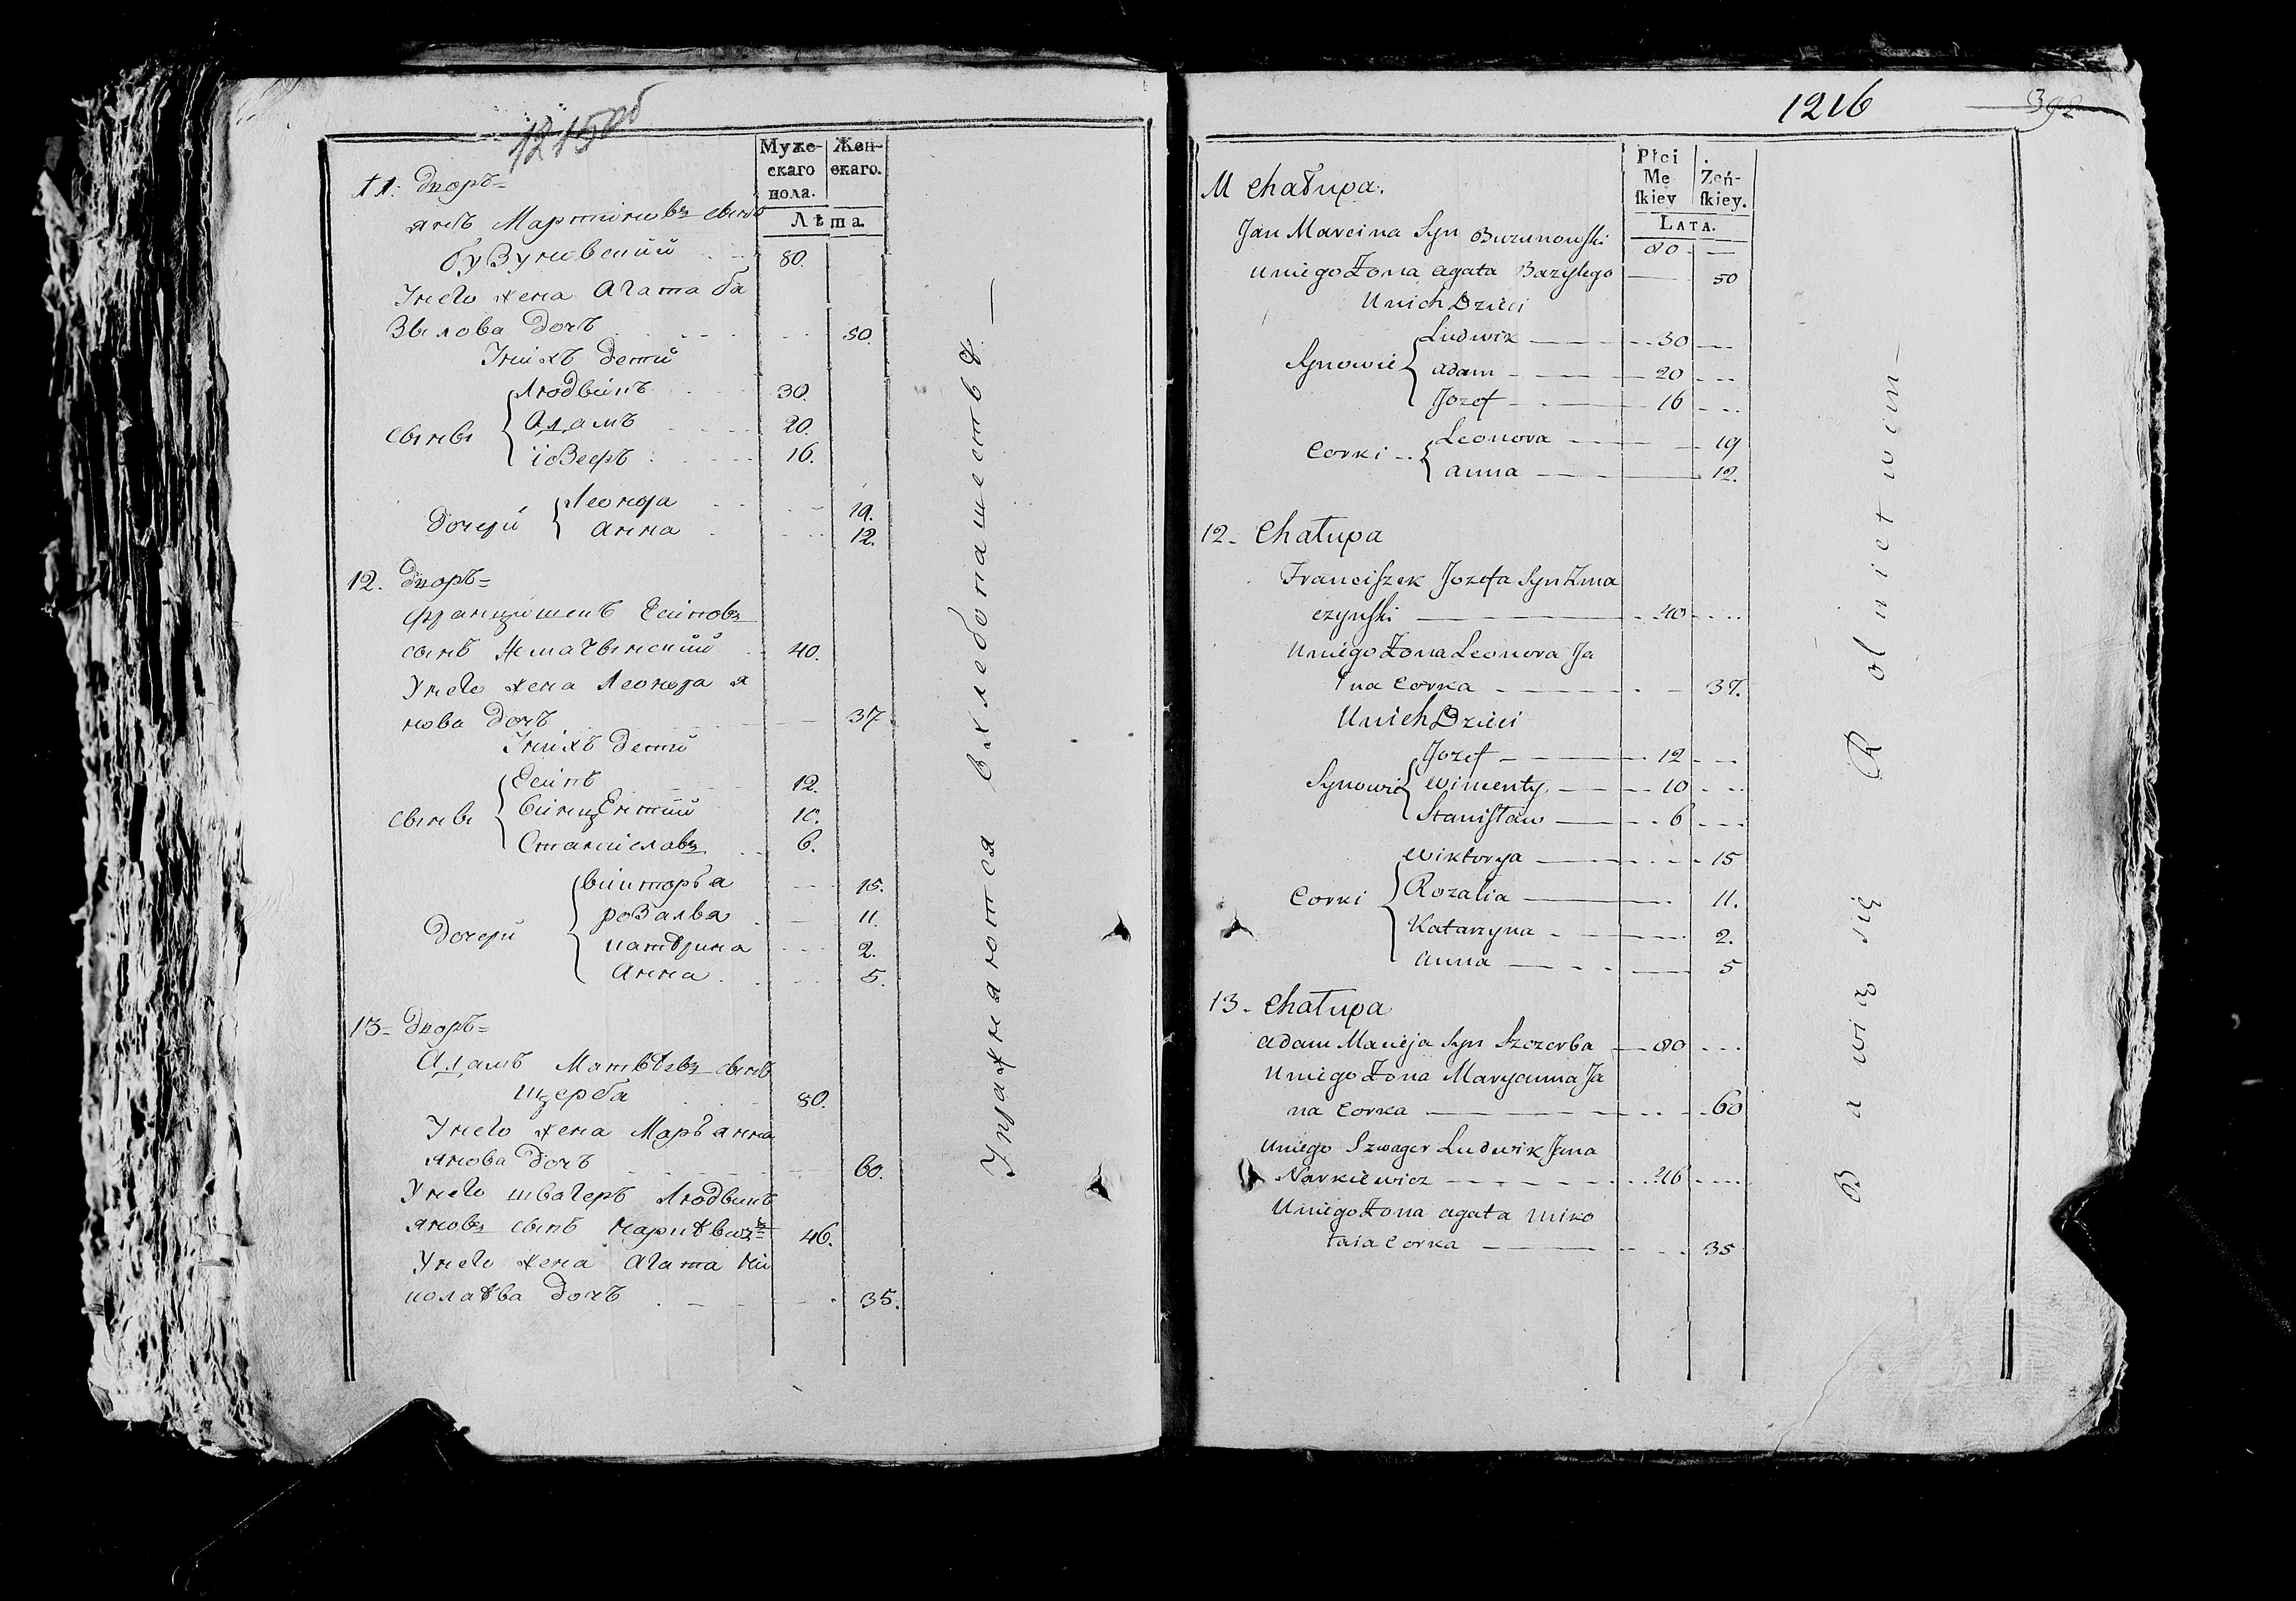 1215об
Муже-
скаго
пола.
Жен-
скаго.
Лѣта.
11. Дворъ=
янъ Мартиновъ сынъ
бузуновский 80.
Унего жена Агата ба
зылова дочъ 50.
Унихъ дети
сыны
Людвикъ 30.
Адамъ 20.
іозефъ 16.
дочери
Леонора 19.
Анна 12.
12. Дворъ=
францишекъ Есиповъ
сынъ 40.
Унего жена Леонора я
нова дочъ 37
Унихъ дети
сыны
Есипъ 12.
винцентий 10.
Станиславъ 6.
дочери
викторъа 15.
розалья 11.
катерина 2.
Анна 5.
13= Дворъ=
Адамъ Матвѣевъ сынъ
щерба 80.
Унего жена Маръанна
янова дочъ 60.
Унего швагеръ Людвикъ
яновъ сынъ 46.
Унего жена Агата Ни
колаева дочъ 35.
Упражняются в хлебопашестве. —
1216
392
Płci
Mę
ſkiey
Żeń-
ſkiey.
LATA.
11 Chałupa.
Jan Marcina Syn Buzunowſki 80 —
Uniego Żona Agata Bazylego — 50
Unich Dzieci
Synowie
Ludwik — 30
Adam — 20
Jozef — 16
Corki
Leonora — 19
Anna — 12.
12. Chałupa
Franciſzek Jozefa Syn Zma
czynſki — 40
Uniego Żona Leonora Ja
na Corka — 37.
Unich Dzieci
Synowie
Jozef — 12
Wincenty — 10
Staniſław — 6
Corki
Wiktorya — 15
Rozalia — 11.
Katarzyna — 2.
Anna — 5
13. Chałupa
Adam Macieja Syn Szczerba — 80
Uniego Żona Maryanna Ja
na Corka — 60
Uniego Szwager Ludwik Jana
Narkiewicz — 46
Uniego Żona Agata Miko
łaia Corka — 35
Bawią się Rolnictwem —